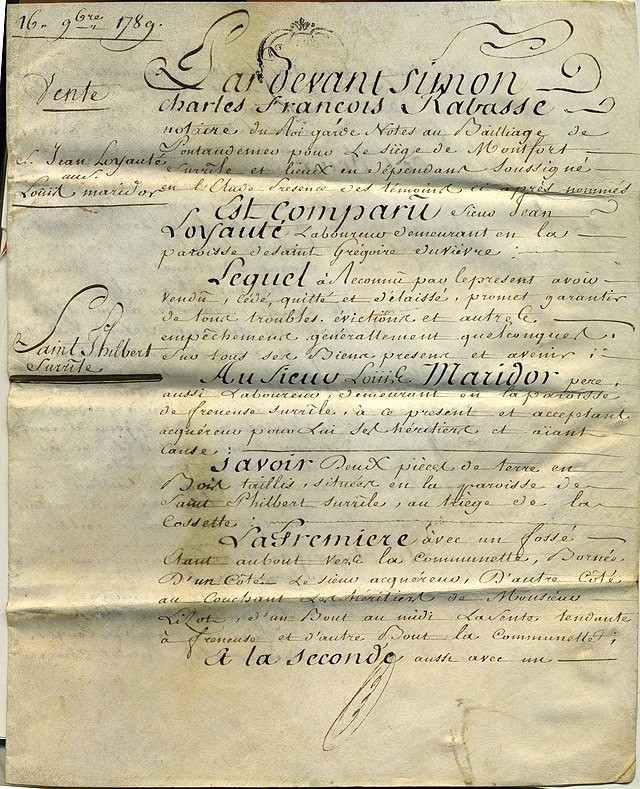 16. 9bre 1789.
Vente
Sr. Jean Loyauté
aux
Louis maridor
Saint Philbert
Surrile
Par devant Simon
Charles François Rabasse
notaire du Roi garde Notes au Bailliage de
Pontaudemer pour Le siège de Montfort
surrile et lieux en dépendant soussigné
en l'Etude presence des témoins ci après nommés
Est Comparû Sieur Jean
Loyauté Laboureur demeurant en la
paroisse de saint Grégoire duvièvre :
Lequel à Reconnû par le present avoir
vendû, Cédé, quitté et délaissé, promet garantir
de tous troubles, évictions et autres
empêchements généralement quelconques
sur tous ses Biens present et avenir ;
Au Sieur Louis Maridor pere,
aussi Laboureur, demeurant en la paroisse
de freneuse surrile, à ce present et acceptant
acquéreur pour Lui ses héritiers et aiant
Cause :
Savoir Deux pièces de terre en
Bois taillis, situées en la paroisse de
Saint Philbert surrile, au triège de la
Cossette :
La Premiere avec un fossé
étant aubout vers la Communette, Bornée
D'un Côté Le sieur acquéreur, D'autre Côté
au Couchant Les héritiers de Monsieur
Lizot, d'un Bout au midi La sente tendante
à freneuse et d'autre Bout la Communette ;
Et la seconde aussi avec un